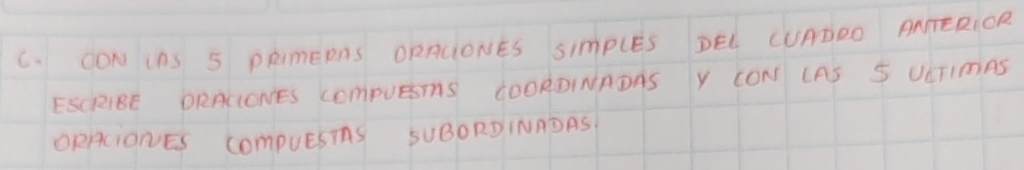 C. CON LAS 5 PRIMERAS ORACIONES SIMPLES DEL CUADRO ANTERIOR
ESCRIBE ORACIONES COMPUESTAS COORDINADAS Y CON LAS 5 ULTIMAS
ORACIONES COMPUESTAS SUBORDINADAS.